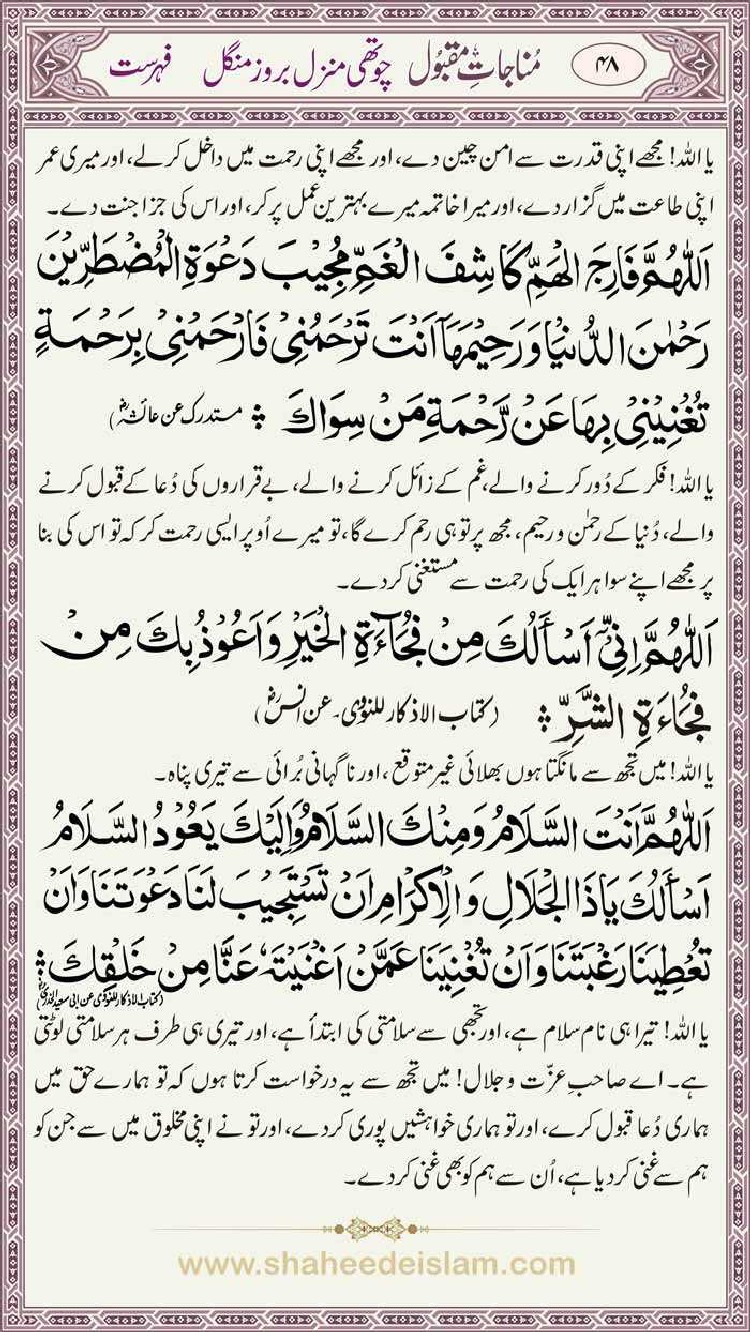 ۴۸ مُناجاتِ مقبُول چوتھی منزل بروز منگل فہرست
یا اللہ! مجھے اپنی قدرت سے امن چین دے، اور مجھے اپنی رحمت میں داخل کر لے، اور میری عمر
اپنی طاعت میں گزار دے، اور میرا خاتمہ میرے بہترین عمل پر کر، اور اس کی جزا جنت دے۔
اَللّٰهُمَّ فَارِجَ الْهَمِّ كَاشِفَ الْغَمِّ مُجِيْبَ دَعْوَةِ الْمُضْطَرِّيْنَ
رَحْمٰنَ الدُّنْيَا وَرَحِيْمَهَآ اَنْتَ تَرْحَمُنِيْ فَارْحَمْنِيْ بِرَحْمَةٍ
تُغْنِيْنِيْ بِهَا عَنْ رَّحْمَةِ مَنْ سِوَاكَ (مستدرک عن عائشہؓ)
یا اللہ! فکر کے دُور کرنے والے، غم کے زائل کرنے والے، بےقراروں کی دُعا کے قبول کرنے
والے، دُنیا کے رحمٰن و رحیم، مجھ پر تو ہی رحم کرے گا، تو میرے اُوپر ایسی رحمت کر کہ تو اس کی بنا
پر مجھے اپنے سوا ہر ایک کی رحمت سے مستغنی کر دے۔
اَللّٰهُمَّ اِنِّيْٓ اَسْأَلُكَ مِنْ فُجَآءَةِ الْخَيْرِ وَاَعُوْذُ بِكَ مِنْ
فُجَاءَةِ الشَّرِّ (کتاب الاذکار للنوویؒ۔ عن انسؓ)
یا اللہ! میں تجھ سے مانگتا ہوں بھلائی غیر متوقع، اور ناگہانی بُرائی سے تیری پناہ۔
اَللّٰهُمَّ اَنْتَ السَّلَامُ وَمِنْكَ السَّلَامُ وَاِلَيْكَ يَعُوْدُ السَّلَامُ
اَسْأَلُكَ يَا ذَا الْجَلَالِ وَالْاِكْرَامِ اَنْ تَسْتَجِيْبَ لَنَا دَعْوَتَنَا وَاَنْ
تُعْطِيَنَا رَغْبَتَنَا وَاَنْ تُغْنِيَنَا عَمَّنْ اَغْنَيْتَهٗ عَنَّا مِنْ خَلْقِكَ
(کتاب الاذکار للنووی عن ابی سعید الخدریؓ)
یا اللہ! تیرا ہی نام سلام ہے، اور تجھی سے سلامتی کی ابتدأ ہے، اور تیری ہی طرف ہر سلامتی لوٹتی
ہے۔ اے صاحبِ عزّت و جلال! میں تجھ سے یہ درخواست کرتا ہوں کہ تو ہمارے حق میں
ہماری دُعا قبول کرے، اور تو ہماری خواہشیں پوری کر دے، اور تو نے اپنی مخلوق میں سے جن کو
ہم سے غنی کر دیا ہے، اُن سے ہم کو بھی غنی کر دے۔
www.shaheedeislam.com